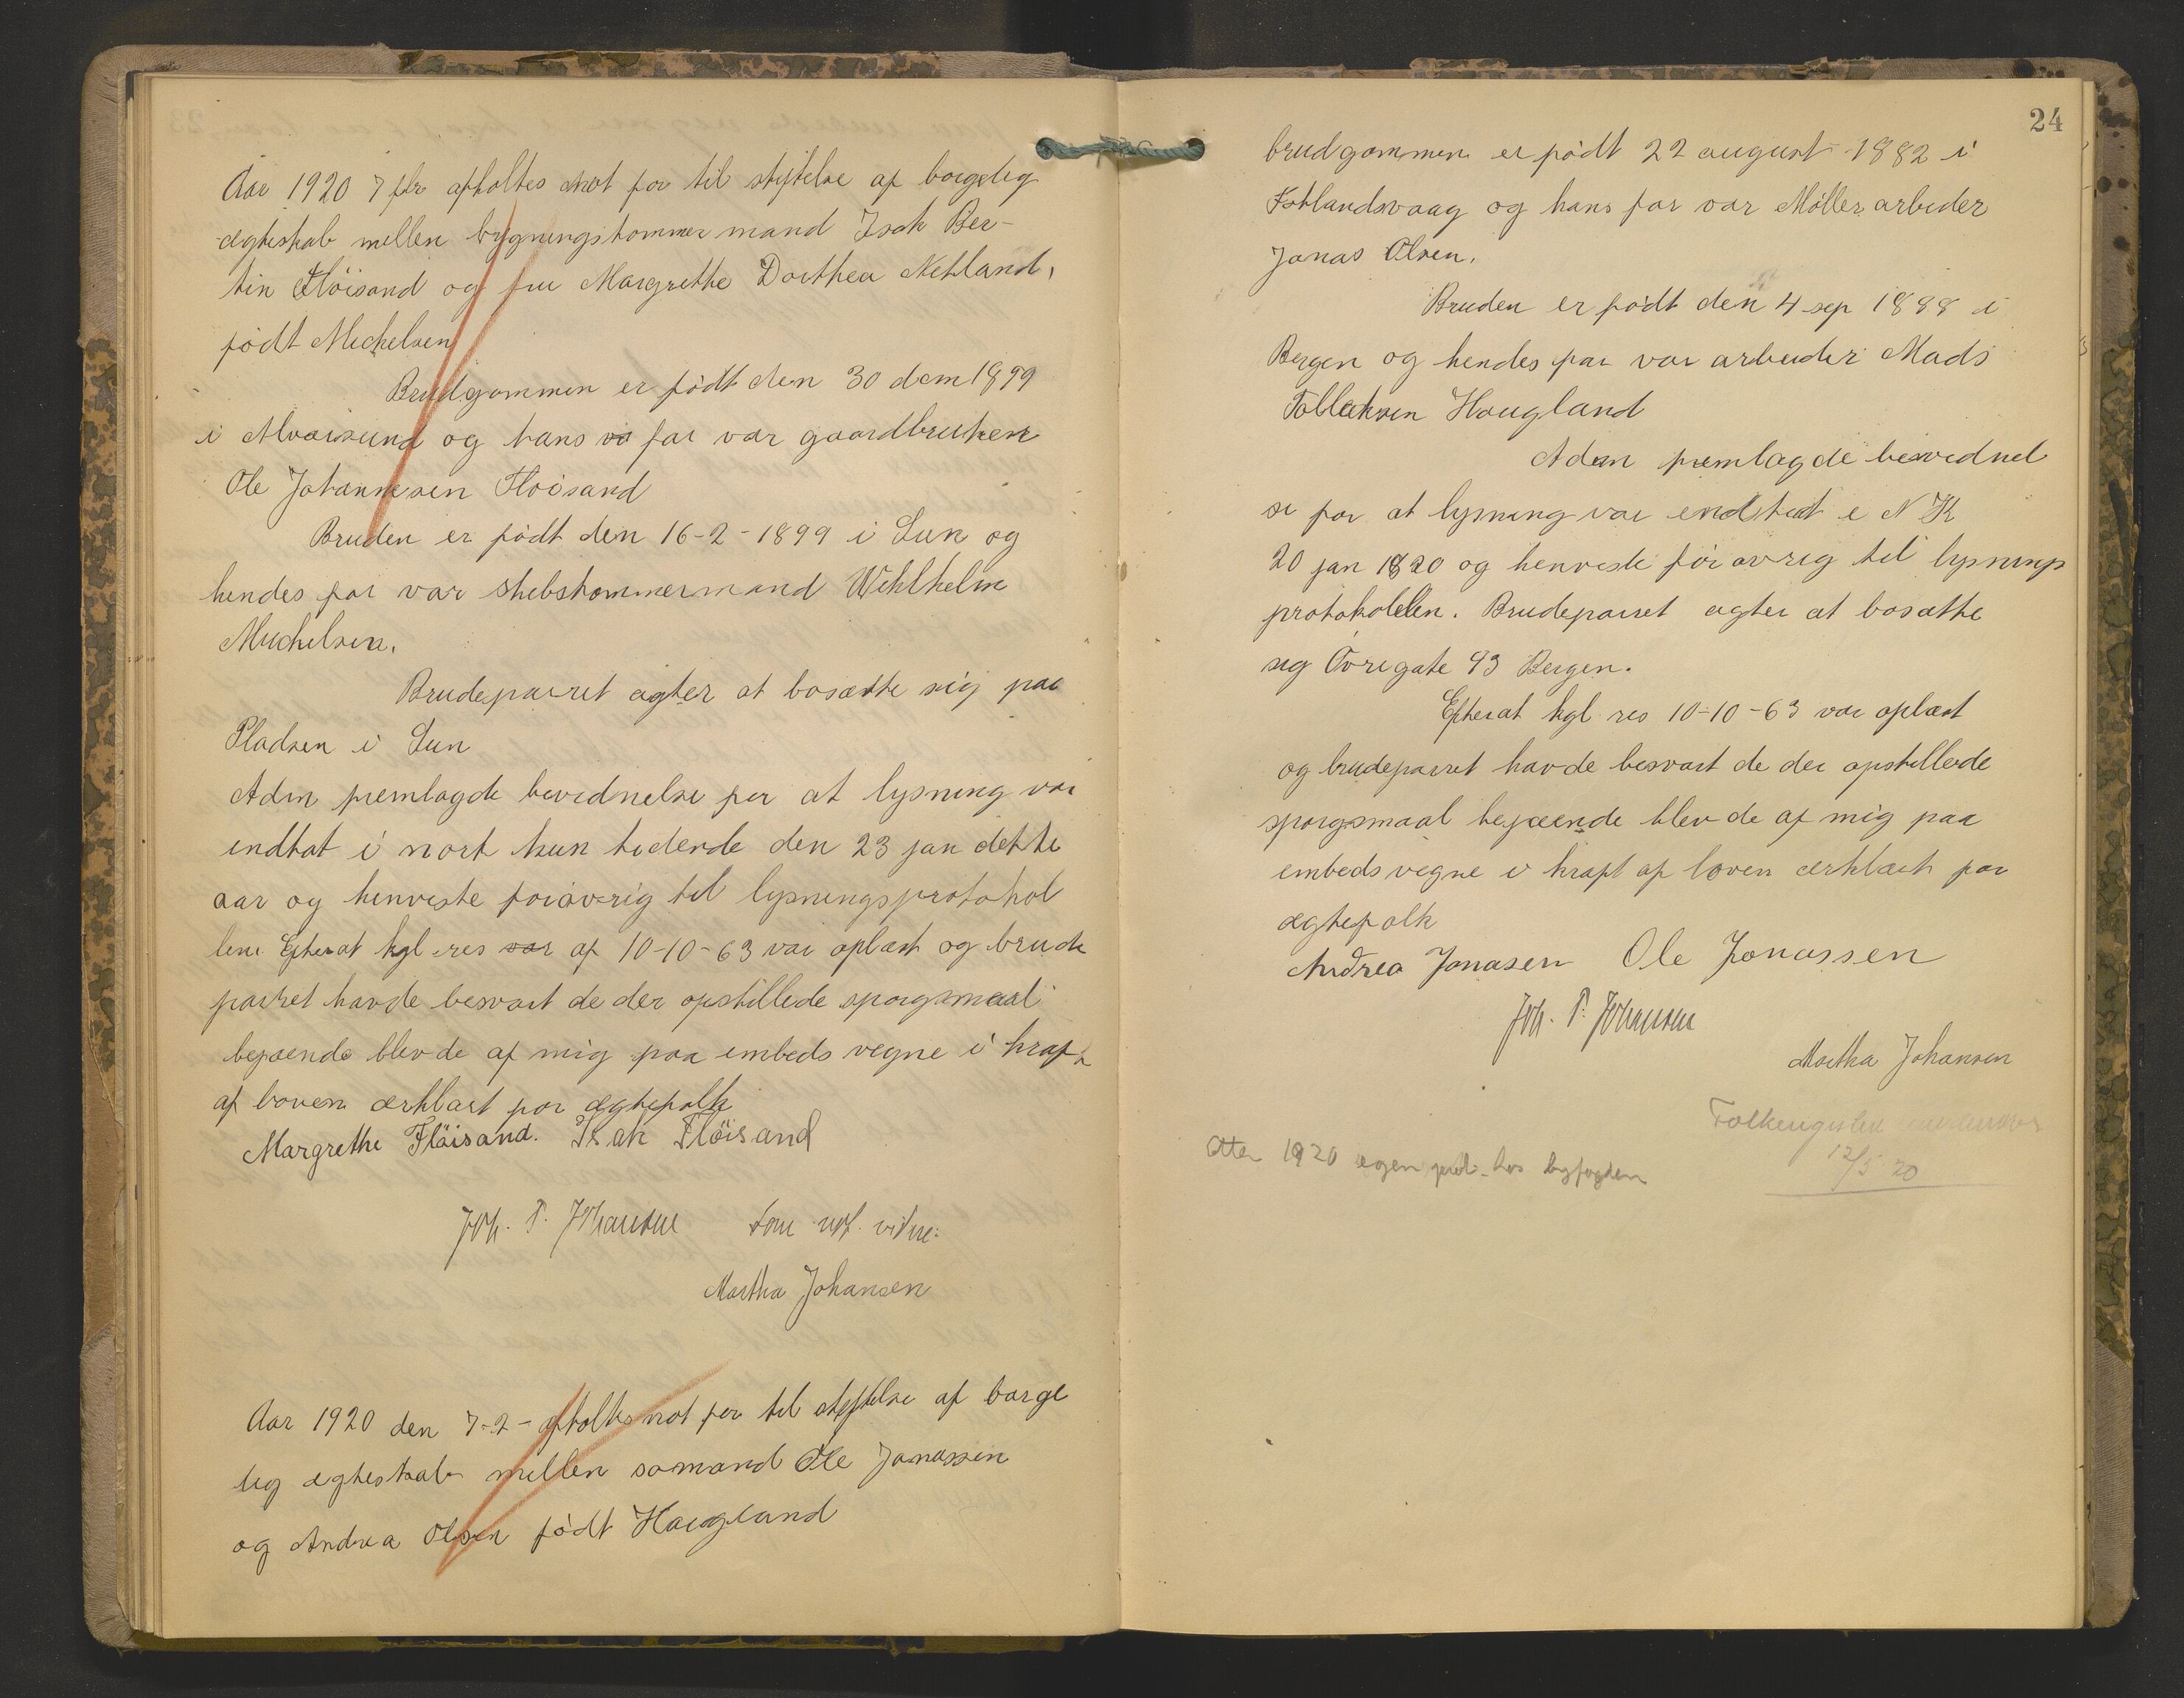 Aar 1920 7 febr afholtes mot for til stiftelse af borgelig
ægteskab mellen bygningstommermand Isak Ber-
tin Flöisand og fru Margrethe Dorthea Netland,
födt Michelsen
Brudgommen er födt den 30 dem 1899
i Alvorsund og hans va far var gaardbruker
Ole Johannesen Flöisand
Bruden er födt den 16-2-1899 i Lun og
hendes far var skebstommermand Wehlhelm
Muchelsen.
Brudeparret agter at bosætte sig paa
Pladsen i Lun
Aden fremlagde bevidnelse for at lysning var
indtat i norsk kun tedende den 23 jan dette
aar og henveste forøvrig til lysningsprotokol
lene Efterat kgl res var af 10-10-63 var oplæst og brude
parret havde besvart de der opstillede sporgsmaal
bejaende blev de af mig paa embeds vegne i kraft
af loven ærklart for ægtefolk
Margrethe Flöisand. Isak Flöisand
Joh. P. Johansen Som not. vitne:
Martha Johansen
Aar 1920 den 7-2- afholtes not for til steftelse af borge
lig ægteskab mellen somand Ole Jonassen
og Andrea Olsen födt Haugland
24
brudgommen er födt 22 august 1882 i
Fotlandsvaag og hans far var Möller arbeider
Jonas Olsen.
Bruden er födt den 4 sep 1888 i
Bergen og hendes far var arbeider Mads
Tolleksen Hougland
Aden fremlagde bevidnel
se for at lysning var endtat i N K
20 jan 1920 og henveste for øvrig til lysnings
protokollen. Brudeparret agter at bosætte
sig Övregate 93 Bergen.
Efterat kgl res 10-10-63 var oplæst
og brudeparret havde besvart de der opstillede
sporgsmaal bejaende blev de af mig paa
embeds vegne i kraft af loven ærklært for
ægtefolk
Andrea Jonasen Ole Jonassen
Joh. P. Johansen
Martha Johansen
Folkeregistret
12/5 20
Etter 1920 egen prot. hos byfogden